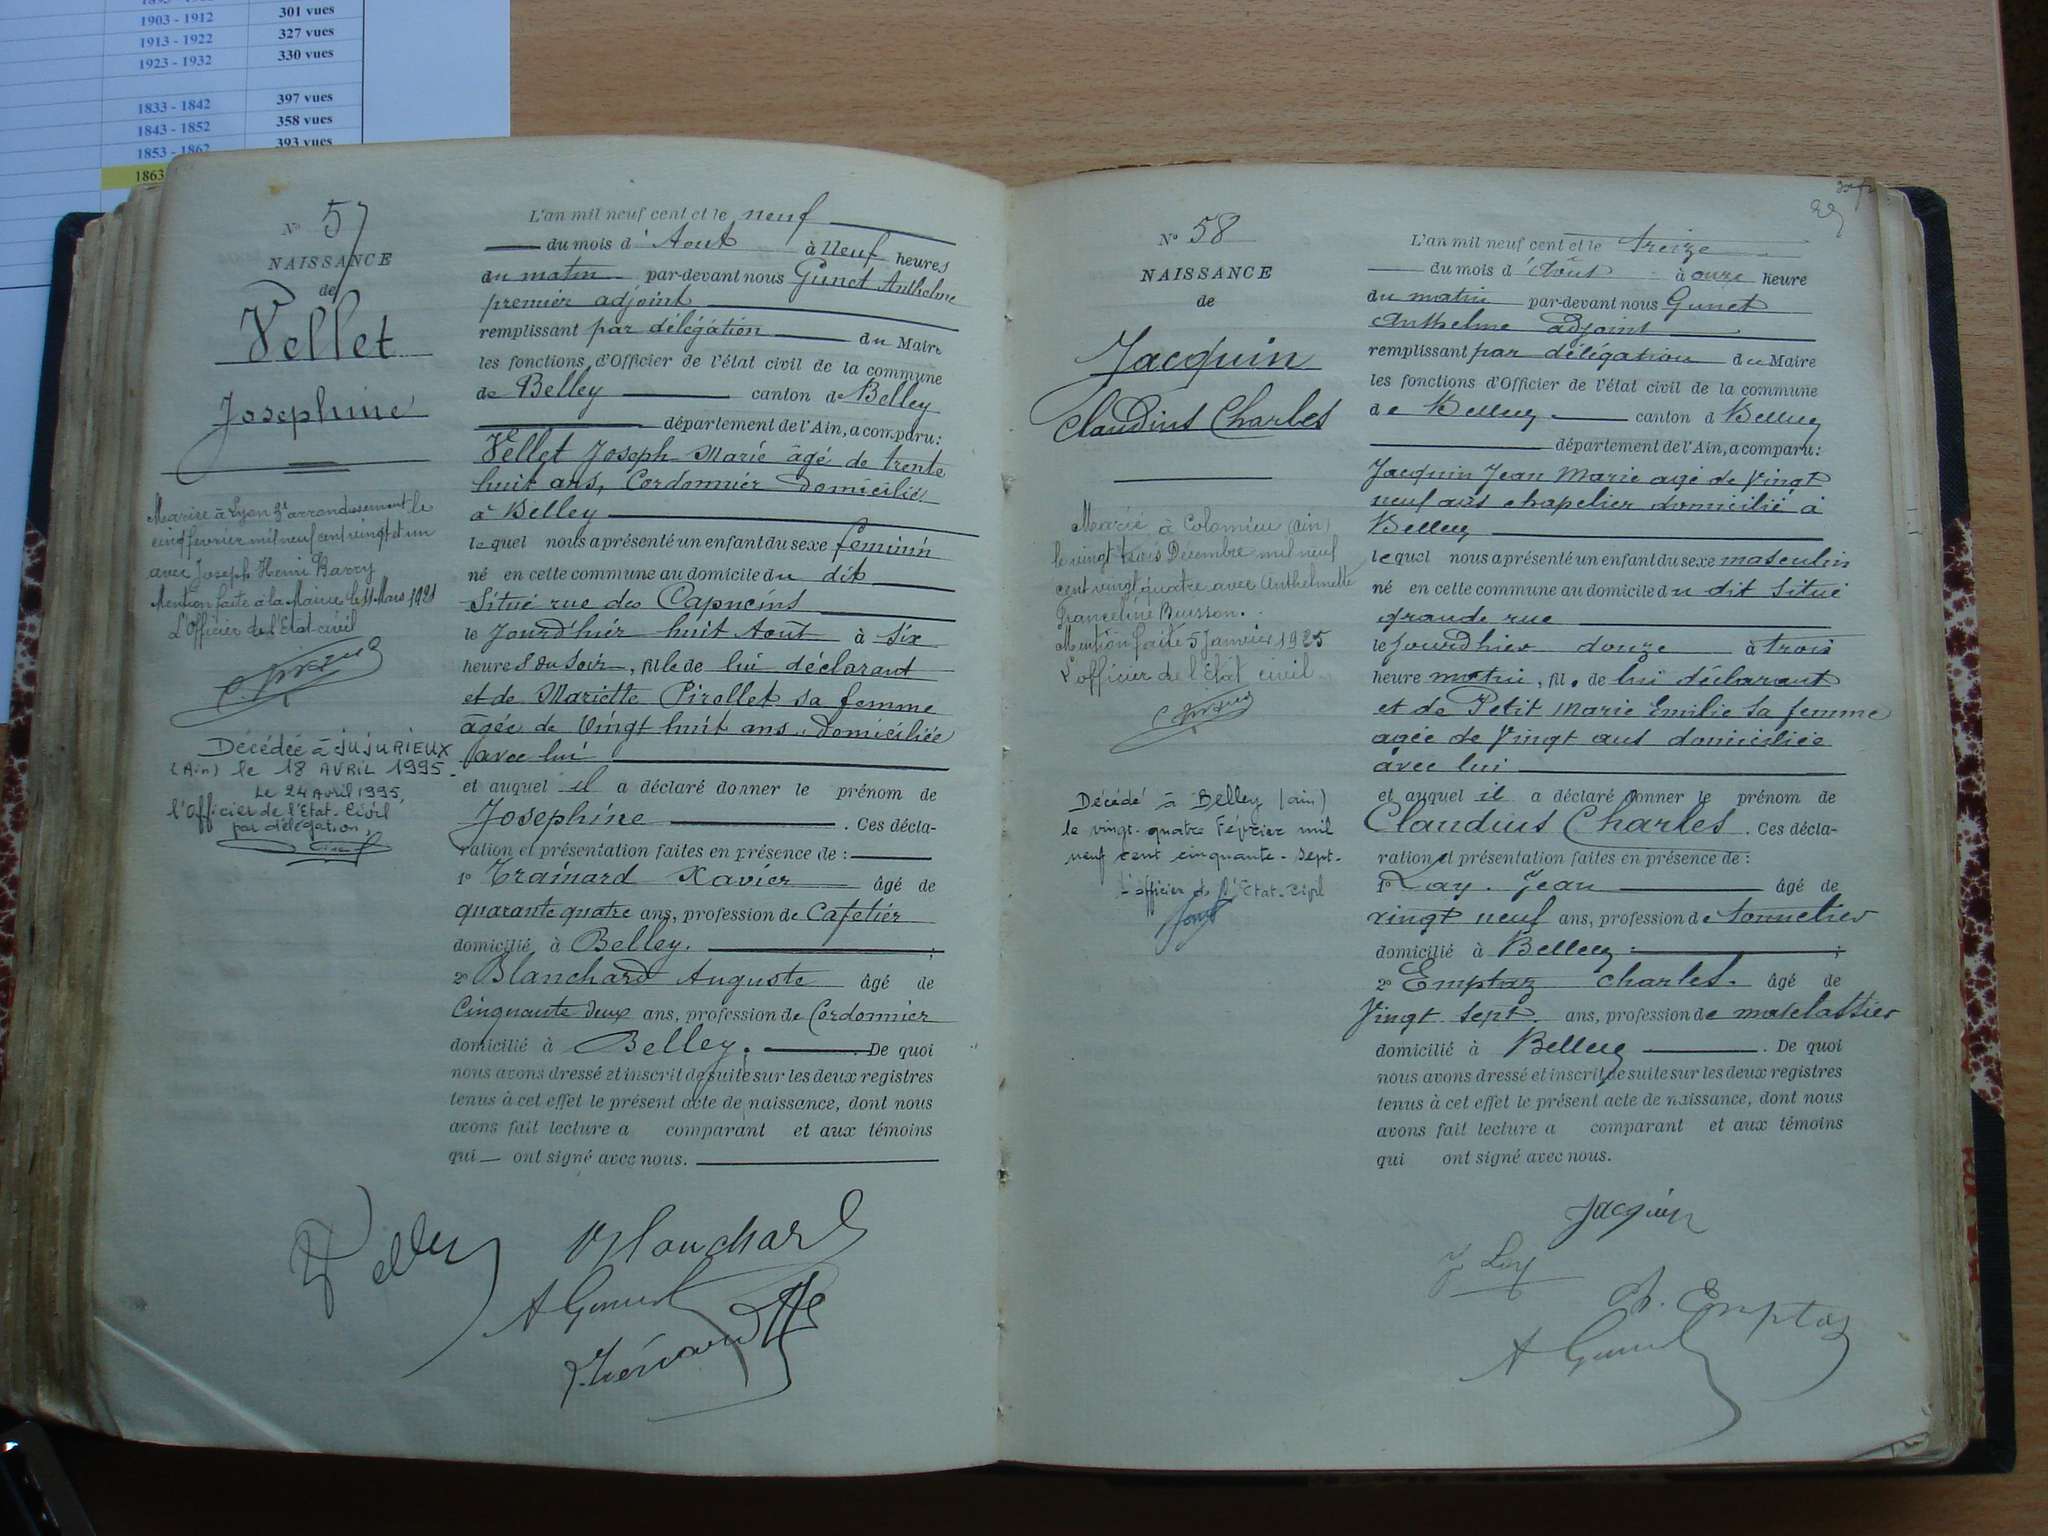 1903 - 1912 301 vues
1913 - 1922 327 vues
1923 - 1932 330 vues
1833 - 1842 397 vues
1843 - 1852 358 vues
1853 - 1862 393 vues
1863
N° 57
NAISSANCE
de
Vellet
Josephine
Mariée à Lyon 3e arrondissement le
cinq février mil neuf cent vingt et un
avec Joseph Henri Barry
Mention faite à la Mairie le 11 Mars 1921
L'Officier de l'Etat-civil
Décédée à JUJURIEUX
(Ain) le 18 AVRIL 1995.
Le 24 Avril 1995,
l'Officier de l'Etat-Civil
par délégation,
L'an mil neuf cent et le neuf
du mois d'Août à neuf heures
du matin par-devant nous Gunet Anthelme
premier adjoint
remplissant par délégation du Maire
les fonctions d'Officier de l'état civil de la commune
de Belley canton de Belley
département de l'Ain, a comparu:
Vellet Joseph Marie âgé de trente
huit ans, Cordonnier domicilié
à Belley
lequel nous a présenté un enfant du sexe feminin
né en cette commune au domicile du dit
Situé rue des Capucins
le Jourd'hier huit Août à six
heures du soir, fille de lui déclarant
et de Mariette Pirollet sa femme
âgée de Vingt huit ans domiciliée
avec lui
et auquel il a déclaré donner le prénom de
Josephine . Ces décla-
ration et présentation faites en présence de :
1° Trainard Xavier âgé de
quarante quatre ans, profession de Cafetier
domicilié à Belley. ;
2° Blanchard Auguste âgé de
Cinquante deux ans, profession de Cordonnier
domicilié à Belley. . De quoi
nous avons dressé et inscrit de suite sur les deux registres
tenus à cet effet le présent acte de naissance, dont nous
avons fait lecture a comparant et aux témoins
qui ont signé avec nous.
Vellet Blanchard
A Gunet
N° 58
NAISSANCE
de
Jacquin
Claudius Charles
Marié à Colomieu (Ain)
le vingt trois Decembre mil neuf
cent vingt quatre avec Anthelmette
Franceline Buisson.
Mention faite 5 Janvier 1925
L'officier de l'Etat civil
Décédé à Belley (ain)
le vingt-quatre Février mil
neuf cent cinquante-sept.
L'officier de l'Etat-civil
L'an mil neuf cent et le treize
du mois d'Août à onze heure
du matin par-devant nous Gunet
Anthelme adjoint
remplissant par délégation du Maire
les fonctions d'Officier de l'état civil de la commune
de Belley canton d Belley
département de l'Ain, a comparu:
Jacquin Jean Marie agé de Vingt
neuf ans chapelier domicilié à
Belley
lequel nous a présenté un enfant du sexe masculin
né en cette commune au domicile du dit situé
grande rue
le jourdhier douze à trois
heure matin, fil. de lui déclarant
et de Petit Marie Emilie sa femme
agée de Vingt ans domiciliée
avec lui
et auquel il a déclaré donner le prénom de
Claudius Charles . Ces décla-
ration et présentation faites en présence de :
1° Lay. Jean âgé de
vingt neuf ans, profession de tonnelier
domicilié à Belley ;
2° Emptaz charles. âgé de
Vingt sept. ans, profession de matelassier
domicilié à Belley . De quoi
nous avons dressé et inscrit de suite sur les deux registres
tenus à cet effet le présent acte de naissance, dont nous
avons fait lecture a comparant et aux témoins
qui ont signé avec nous.
Jacquin
J Lay
Ch. Emptaz
A Gunet